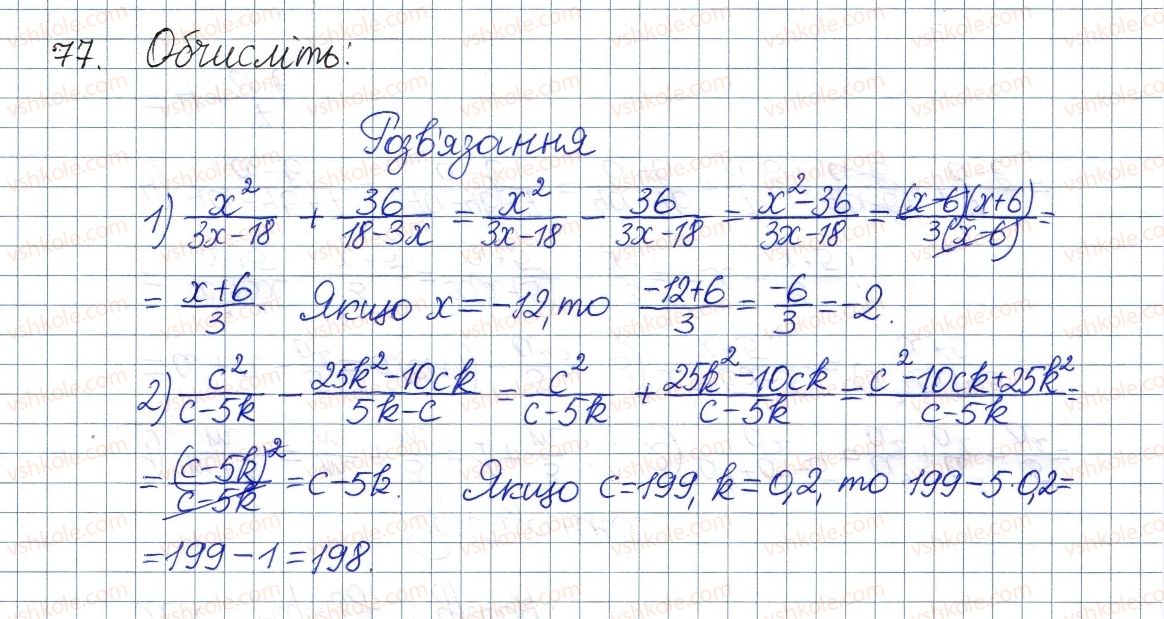 77. Обчисліть:
Розв'язання
1) x²/(3x-18) + 36/(18-3x) = x²/(3x-18) - 36/(3x-18) = (x²-36)/(3x-18) = (x-6)(x+6)/3(x-6) =
= (x+6)/3. Якщо x = -12, то (-12+6)/3 = -6/3 = -2.
2) c²/(c-5k) - (25k²-10ck)/(5k-c) = c²/(c-5k) + (25k²-10ck)/(c-5k) = (c²-10ck+25k²)/(c-5k) =
= (c-5k)²/(c-5k) = c-5k. Якщо c=199, k=0,2, то 199-5·0,2=
=199-1=198.